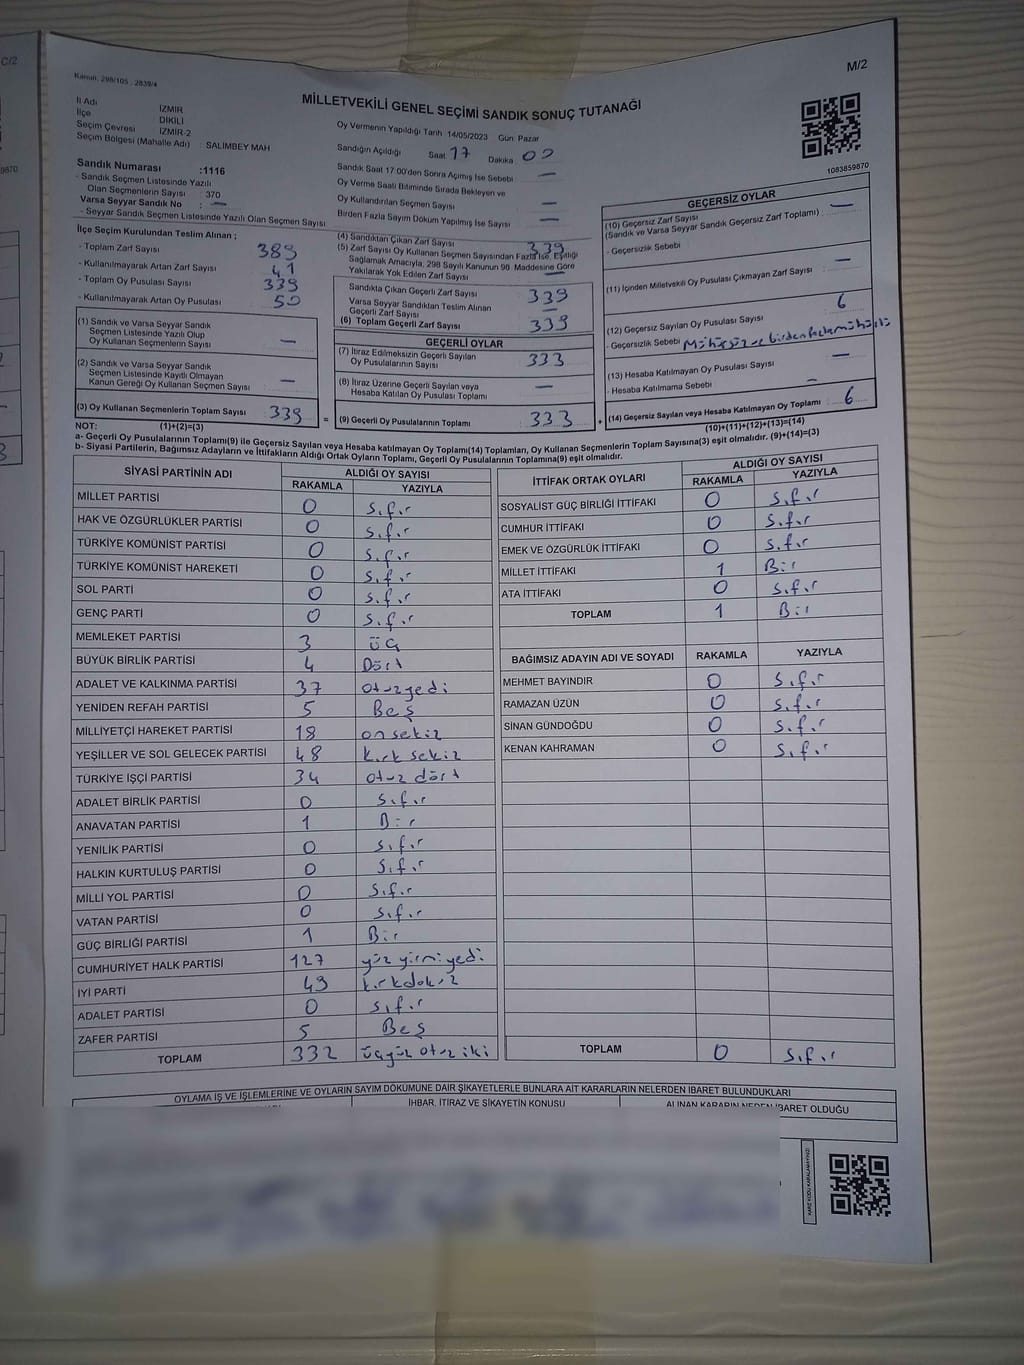 C/2
M/2
Kanun, 298/105 , 2839/4
MİLLETVEKİLİ GENEL SEÇİMİ SANDIK SONUÇ TUTANAĞI
İl Adı İZMİR
İlçe DİKİLİ
Seçim Çevresi İZMİR-2
Seçim Bölgesi (Mahalle Adı) : SALİMBEY MAH
Sandık Numarası :1116
- Sandık Seçmen Listesinde Yazılı
Olan Seçmenlerin Sayısı : 370
Varsa Seyyar Sandık No : —
- Seyyar Sandık Seçmen Listesinde Yazılı Olan Seçmen Sayısı
Oy Vermenin Yapıldığı Tarih 14/05/2023 Gün Pazar
Sandığın Açıldığı Saat 17 Dakika 00
Sandık Saat 17:00'den Sonra Açılmış İse Sebebi —
Oy Verme Saati Bitiminde Sırada Bekleyen ve
Oy Kullandırılan Seçmen Sayısı —
Birden Fazla Sayım Döküm Yapılmış İse Sayısı —
1083859870
İlçe Seçim Kurulundan Teslim Alınan :
- Toplam Zarf Sayısı 389
- Kullanılmayarak Artan Zarf Sayısı 41
- Toplam Oy Pusulası Sayısı 339
- Kullanılmayarak Artan Oy Pusulası 50
(1) Sandık ve Varsa Seyyar Sandık
Seçmen Listesinde Yazılı Olup
Oy Kullanan Seçmenlerin Sayısı —
(2) Sandık ve Varsa Seyyar Sandık
Seçmen Listesinde Kayıtlı Olmayan
Kanun Gereği Oy Kullanan Seçmen Sayısı —
(3) Oy Kullanan Seçmenlerin Toplam Sayısı 339 =
(1)+(2)=(3)
(4) Sandıktan Çıkan Zarf Sayısı 339
(5) Zarf Sayısı Oy Kullanan Seçmen Sayısından Fazla İse, Eşitliği
Sağlamak Amacıyla, 298 Sayılı Kanunun 98. Maddesine Göre
Yakılarak Yok Edilen Zarf Sayısı —
Sandıkta Çıkan Geçerli Zarf Sayısı 339
Varsa Seyyar Sandıktan Teslim Alınan
Geçerli Zarf Sayısı —
(6) Toplam Geçerli Zarf Sayısı 339
GEÇERLİ OYLAR
(7) İtiraz Edilmeksizin Geçerli Sayılan
Oy Pusulalarının Sayısı 333
(8) İtiraz Üzerine Geçerli Sayılan veya
Hesaba Katılan Oy Pusulası Toplamı —
(9) Geçerli Oy Pusulaları Toplamı 333 +
GEÇERSİZ OYLAR
(10) Geçersiz Zarf Sayısı
(Sandık ve Varsa Seyyar Sandık Geçersiz Zarf Toplamı) : —
- Geçersizlik Sebebi
(11) İçinden Milletvekili Oy Pusulası Çıkmayan Zarf Sayısı —
(12) Geçersiz Sayılan Oy Pusulası Sayısı 6
- Geçersizlik Sebebi Mühürsüz ve birden fazla mühürlü
(13) Hesaba Katılmayan Oy Pusulası Sayısı —
- Hesaba Katılmama Sebebi —
(14) Geçersiz Sayılan veya Hesaba Katılmayan Oy Toplamı 6
(10)+(11)+(12)+(13)=(14)
NOT:
a- Geçerli Oy Pusulalarının Toplamı(9) ile Geçersiz Sayılan veya Hesaba katılmayan Oy Toplamı(14) Toplamları, Oy Kullanan Seçmenlerin Toplam Sayısına(3) eşit olmalıdır. (9)+(14)=(3)
b- Siyasi Partilerin, Bağımsız Adayların ve İttifakların Aldığı Ortak Oyların Toplamı, Geçerli Oy Pusulalarının Toplamına(9) eşit olmalıdır.
SİYASİ PARTİNİN ADI ALDIĞI OY SAYISI
RAKAMLA YAZIYLA
MİLLET PARTİSİ 0 Sıfır
HAK VE ÖZGÜRLÜKLER PARTİSİ 0 Sıfır
TÜRKİYE KOMÜNİST PARTİSİ 0 Sıfır
TÜRKİYE KOMÜNİST HAREKETİ 0 Sıfır
SOL PARTİ 0 Sıfır
GENÇ PARTİ 0 Sıfır
MEMLEKET PARTİSİ 3 üç
BÜYÜK BİRLİK PARTİSİ 4 Dört
ADALET VE KALKINMA PARTİSİ 37 otuzyedi
YENİDEN REFAH PARTİSİ 5 Beş
MİLLİYETÇİ HAREKET PARTİSİ 18 onsekiz
YEŞİLLER VE SOL GELECEK PARTİSİ 48 kırk sekiz
TÜRKİYE İŞÇİ PARTİSİ 34 otuz dört
ADALET BİRLİK PARTİSİ 0 Sıfır
ANAVATAN PARTİSİ 1 Bir
YENİLİK PARTİSİ 0 Sıfır
HALKIN KURTULUŞ PARTİSİ 0 Sıfır
MİLLİ YOL PARTİSİ 0 Sıfır
VATAN PARTİSİ 0 Sıfır
GÜÇ BİRLİĞİ PARTİSİ 1 Bir
CUMHURİYET HALK PARTİSİ 127 yüz yirmi yedi
İYİ PARTİ 49 kırkdokuz
ADALET PARTİSİ 0 Sıfır
ZAFER PARTİSİ 5 Beş
TOPLAM 332 üçyüz otuz iki
İTTİFAK ORTAK OYLARI ALDIĞI OY SAYISI
RAKAMLA YAZIYLA
SOSYALİST GÜÇ BİRLİĞİ İTTİFAKI 0 Sıfır
CUMHUR İTTİFAKI 0 Sıfır
EMEK VE ÖZGÜRLÜK İTTİFAKI 0 Sıfır
MİLLET İTTİFAKI 1 Bir
ATA İTTİFAKI 0 Sıfır
TOPLAM 1 Bir
BAĞIMSIZ ADAYIN ADI VE SOYADI RAKAMLA YAZIYLA
MEHMET BAYINDIR 0 Sıfır
RAMAZAN ÜZÜN 0 Sıfır
SİNAN GÜNDOĞDU 0 Sıfır
KENAN KAHRAMAN 0 Sıfır
TOPLAM 0 Sıfır
OYLAMA İŞ VE İŞLEMLERİNE VE OYLARIN SAYIM DÖKÜMÜNE DAİR ŞİKAYETLERLE BUNLARA AİT KARARLARIN NELERDEN İBARET BULUNDUKLARI
İHBAR, İTİRAZ VE ŞİKAYETİN KONUSU
ALINAN KARARIN NEDEN İBARET OLDUĞU
KARE KODU KARALAMAYINIZ!